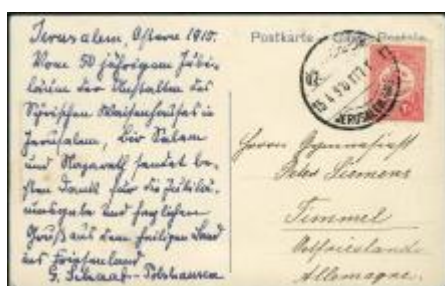 Jerusalem, Ostern 1910.
Vom 50 jährigen Jubi-
läum der Anstalten des
Syrischen Waisenhauses in
Jerusalem, Bir Salem
und Nazareth sendet be-
sten Dank für die Jubilä-
umsgabe und herzlichen
Gruß aus dem heiligen Land
ins Friesenland
G. Schaaf-
Postkarte
Postale
JERUSALEM
Herrn Gymnasiast
Peter Siemens
Timmel
Ostfriesland
Allemagne.